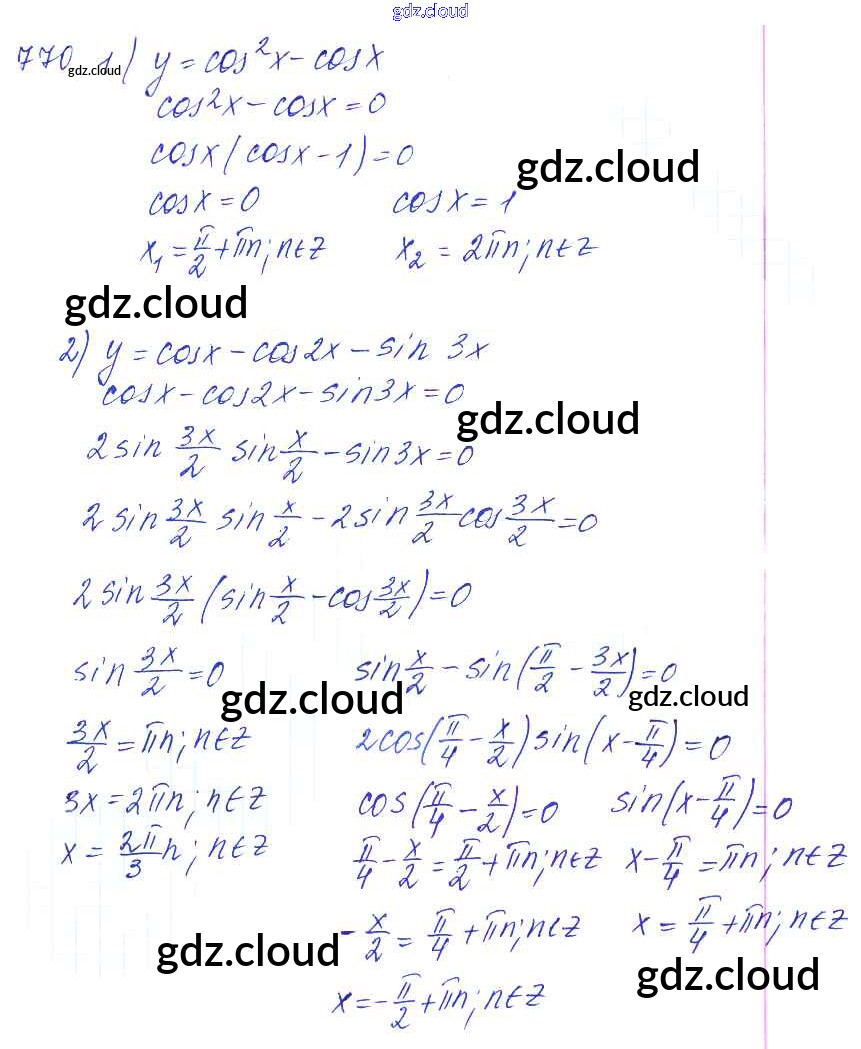 gdz.cloud
770 gdz.cloud 1) y = cos²x - cosx
cos²x - cosx = 0
cosx(cosx - 1) = 0
gdz.cloud
cosx = 0 cosx = 1
x₁ = π/2 + πn; n∈Z x₂ = 2πn; n∈Z
gdz.cloud
2) y = cosx - cos2x - sin 3x
cosx - cos2x - sin3x = 0
gdz.cloud
2 sin 3x/2 sin x/2 - sin3x = 0
2 sin 3x/2 sin x/2 - 2 sin 3x/2 cos 3x/2 = 0
2 sin 3x/2 (sin x/2 - cos 3x/2) = 0
sin 3x/2 = 0 sin x/2 - sin(π/2 - 3x/2) = 0
gdz.cloud gdz.cloud
3x/2 = πn; n∈Z 2cos(π/4 - x/2) sin(x - π/4) = 0
3x = 2πn; n∈Z cos(π/4 - x/2) = 0 sin(x - π/4) = 0
x = 2π/3 n; n∈Z π/4 - x/2 = π/2 + πn; n∈Z x - π/4 = πn; n∈Z
- x/2 = π/4 + πn; n∈Z x = π/4 + πn; n∈Z
gdz.cloud gdz.cloud
x = - π/2 + πn; n∈Z